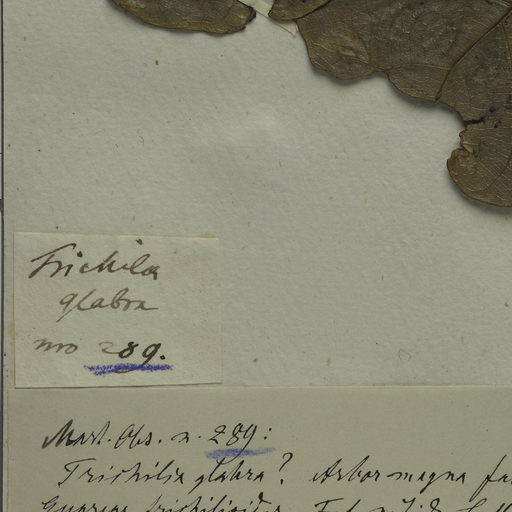 Trichila
glabra
nro 289.
Mart. Obs. n. 289:
Trichilia glabra? Arbor magna fa
Guarea trichilioides